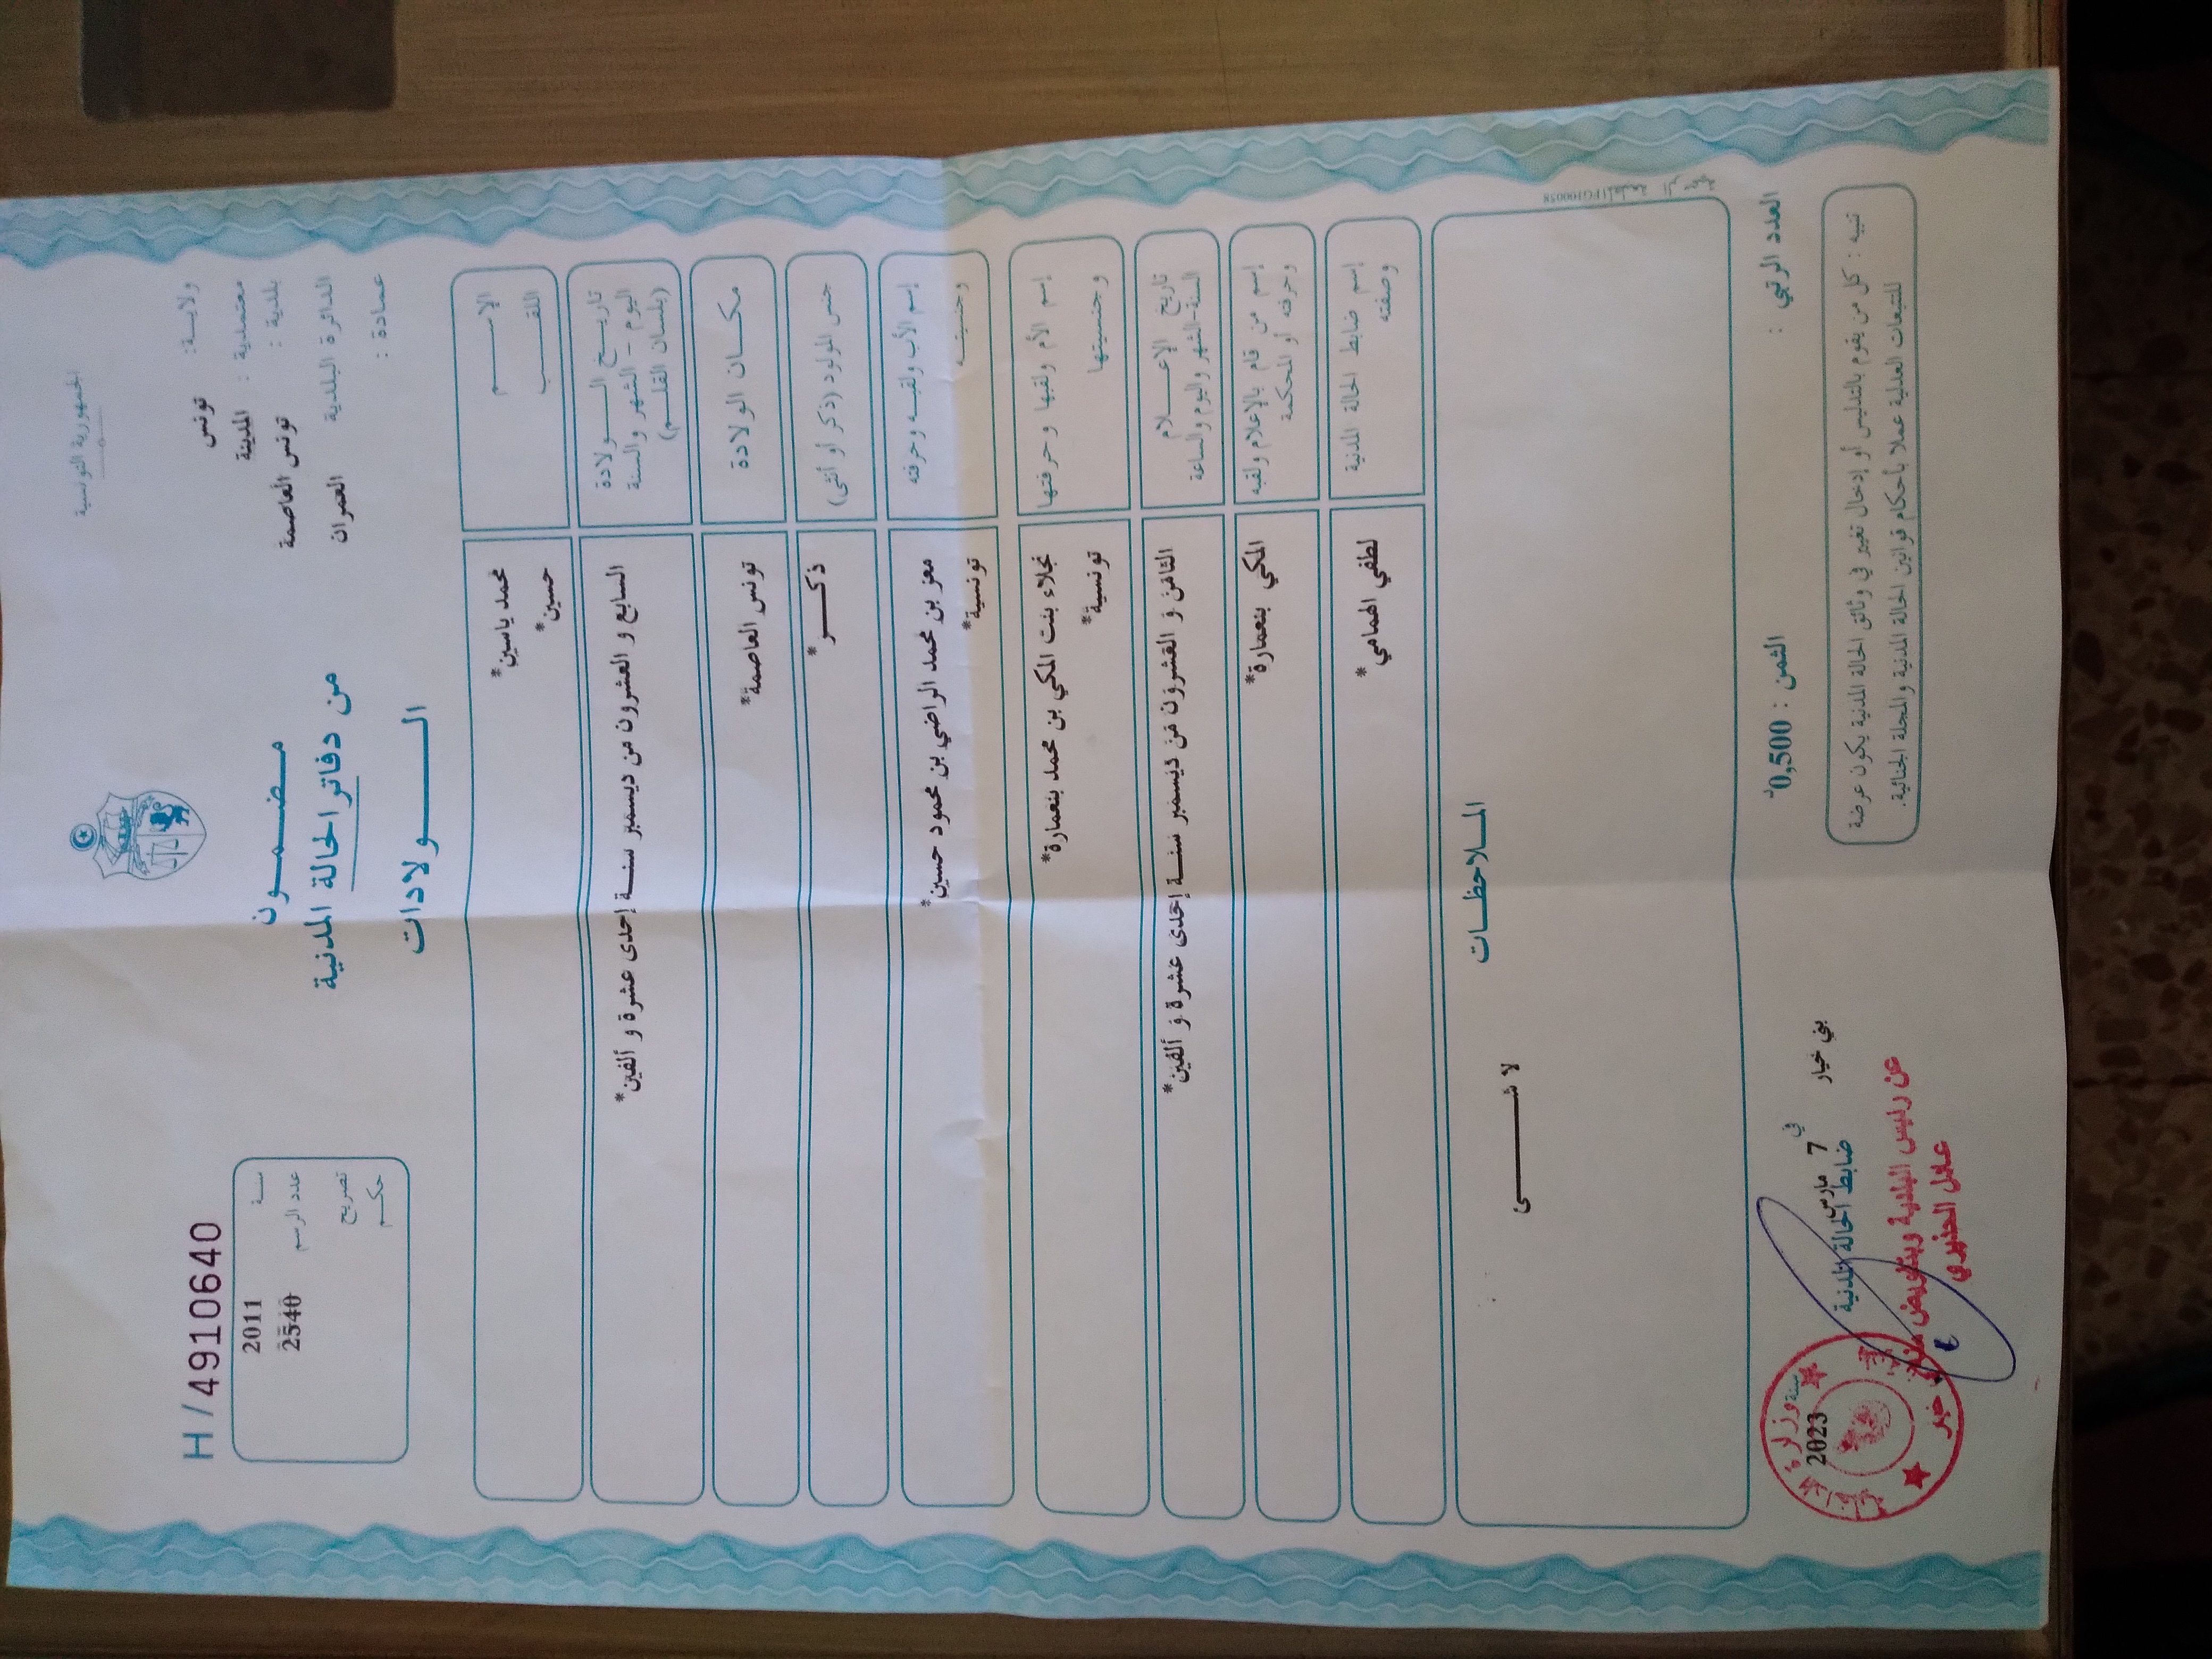 الجمهورية التونسية
ولايـة: تونس
معتمدية : المدينة
بلدية : تونس العاصمة
الدائرة البلدية العمران
عمادة :
مضمـــون
من دفاتر الحالة المدنية
الـــولادات
H/4910640
سنـة 2011
عدد الرسم 2540
تصريح
حكـم
الإســـم
اللقـــب
محمد ياسين*
حسين*
تاريـــخ الـــولادة
اليوم - الشهر والسنة
(بلسان القلـم)
السابع و العشرون من ديسمبر سنـة إحدى عشرة و ألفين*
مكــان الولادة
تونس العاصمة*
جنس المولود (ذكر أو أنثى)
ذكـــر*
إسم الأب ولقبـه وحرفته
وجنسيتـه
معز بن محمد الراضي بن محمود حسين*
تونسية*
إسم الأم ولقبها وحرفتها
وجنسيتها
نجلاء بنت المكي بن محمد بنعمارة*
تونسية*
تاريخ الإعـــلام
السنة-الشهر واليوم والساعة
الثامن و العشرون من ديسمبر سنـة إحدى عشرة و ألفين*
إسم من قام بالإعلام ولقبه
وحرفته أو المحكمة
المكي بنعمارة*
إسم ضابط الحالة المدنية
وصفته
لطفي الهمامي*
الملاحظـات
لا شـــــىء
العدد الرتبي :
الثمن : 0,500د
بني خيار في 7 مارس سنة 2023
ضابط الحالة المدنية
عن رئيس البلدية وبتفويض منه
عادل
تنبيه : كل من يقوم بالتدليس أو إدخال تغيير في وثائق الحالة المدنية يكون عرضة
للتتبعات العدلية عملا بأحكام قوانين الحالة المدنية والمجلة الجنائية.